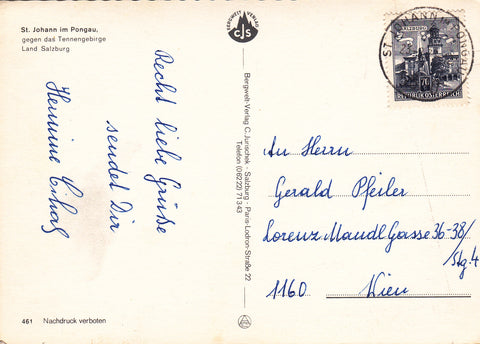 St. Johann im Pongau,
gegen das Tennengebirge
Land Salzburg
Recht liebe Grüße
sendet Dir
Hermine
BERGWELT VERLAG
CJS
Bergwelt-Verlag C. Jurischek · Salzburg · Paris-Lodron-Straße 22
Telefon (06222) 71343
ST. JOHANN IM PONGAU
SALZBURG
REPUBLIK ÖSTERREICH
An Herrn
Gerald Pfeiler
Lorenz Mandl Gasse 36-38/
Stg. 4
1160 Wien
461 Nachdruck verboten